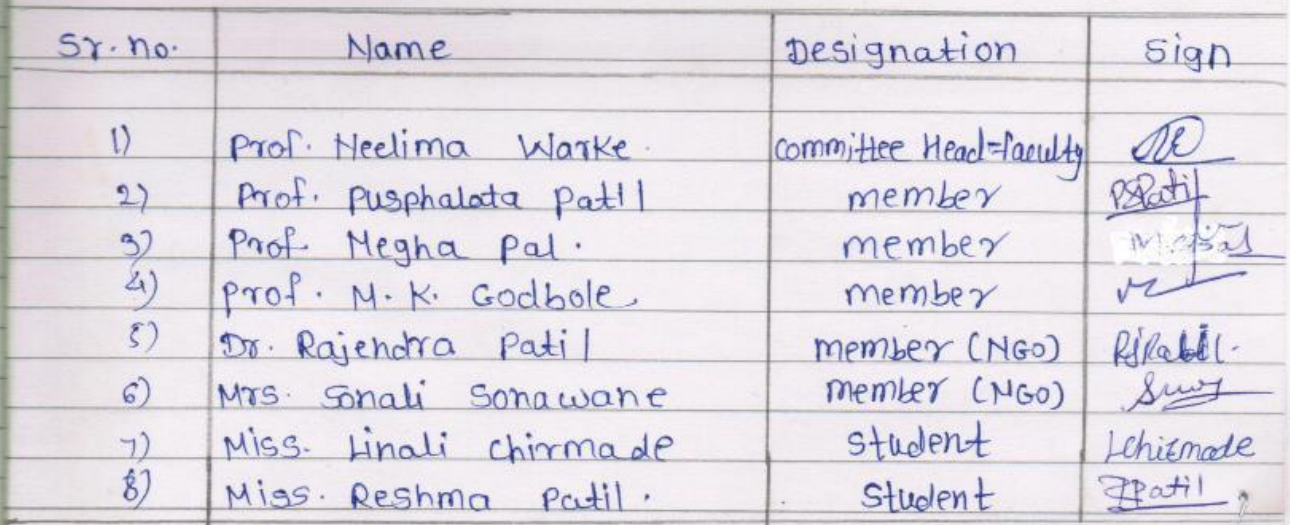 Sr. no. Name Designation Sign
1) Prof. Neelima Warke. committee Head=faculty
2) Prof. Pusphalata Patil member PSPatil
3) Prof. Megha Pal. member
4) Prof. M. K. Godbole. member
5) Dr. Rajendra Patil member (NGO)
6) Mrs. Sonali Sonawane member (NGO)
7) Miss. Linali Chirmade Student LChirmade
8) Miss. Reshma Patil. Student